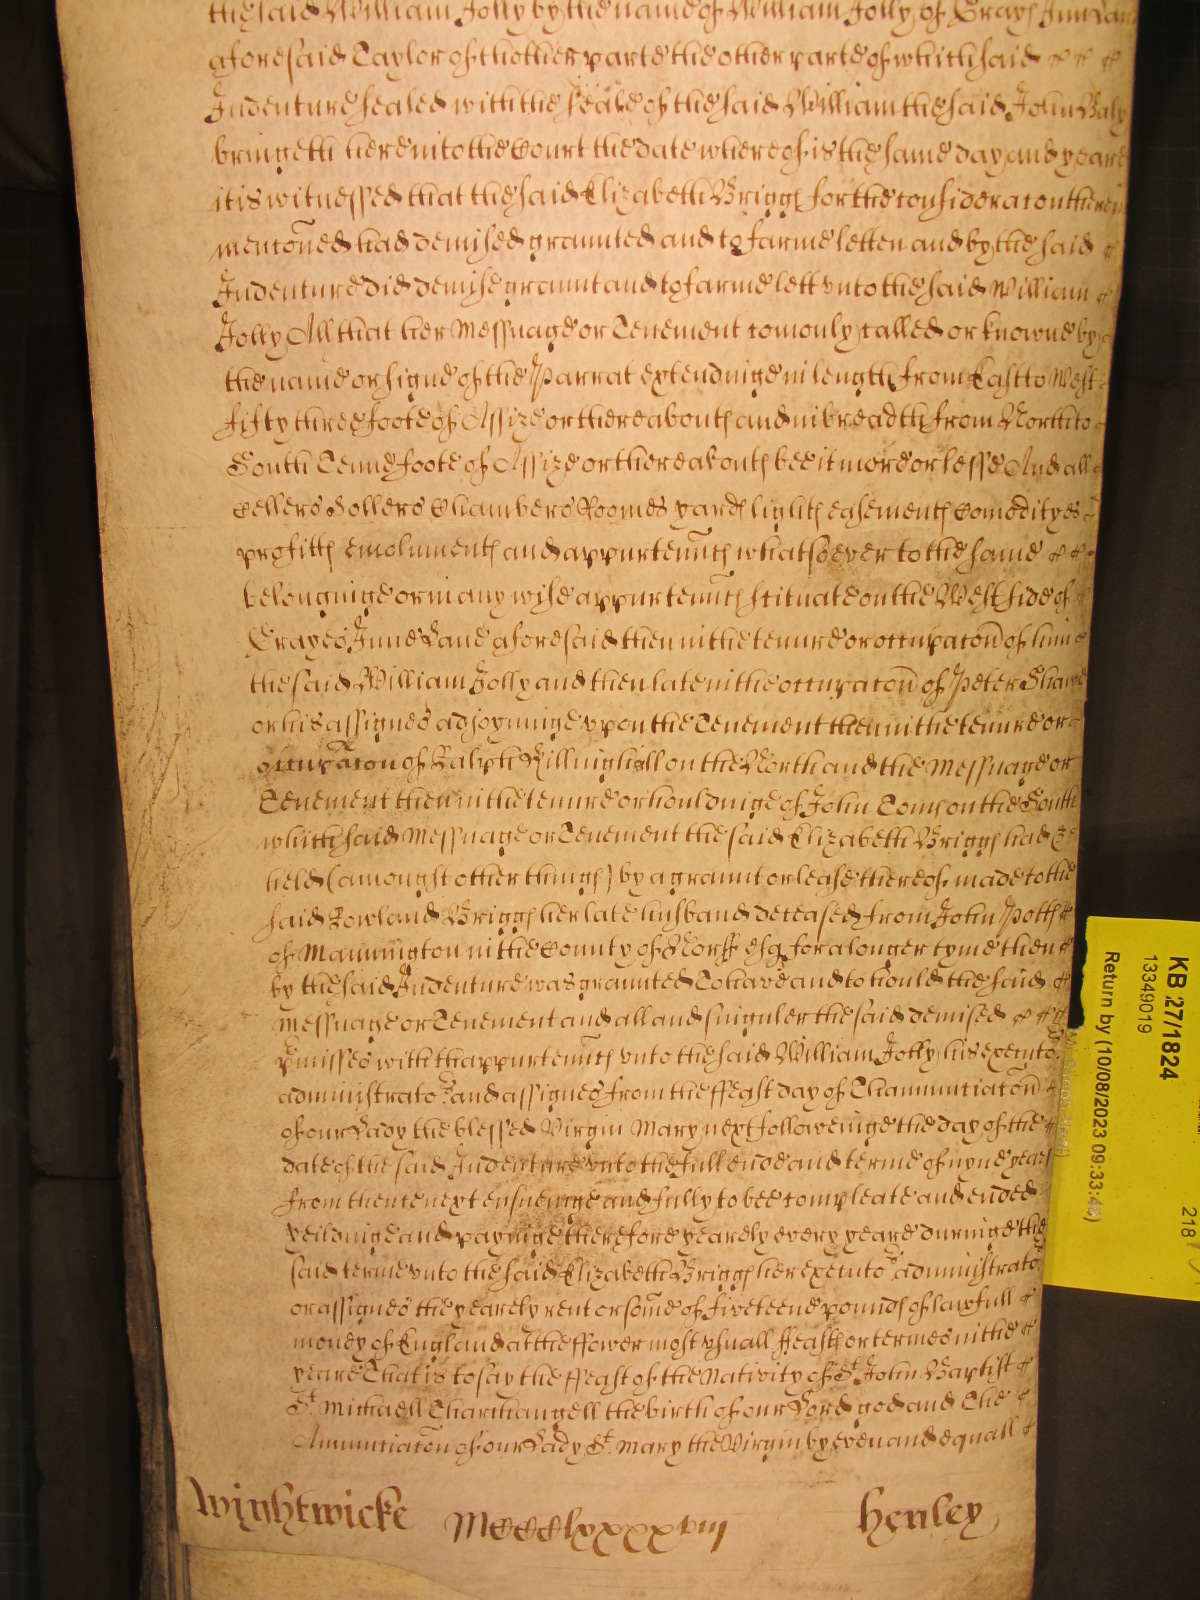 the said William Jolly by the name of William Jolly of Grays Inn Lane
aforesaid Taylor of thother parte the other parte of which said
Indenture sealed with the seale of the said William the said John Baly
bringeth here into the Court the date whereof is the same day and yeare
it is witnessed that the said Elizabeth Briggs for the consideracon therein
menconed had demised graunted and to farme letten and by the said
Indenture did demise graunt and to farme lett unto the said William
Jolly All that her Messuage or Tenement comonly called or knowne by
the name or signe of the Parrat extendinge in length from East to West
fifty three foote of Assize or thereabouts and in breadth from North to
South Tenne foote of Assize or thereabouts bee it more or lesse And all
cellers Sollers Chambers Roomes yards lights easements Comodityes
profitts emoluments and appurtenncs whatsoever to the same
belonginge or in any wise appurtennts scituate on the West side of
Grayes Inne Lane aforesaid then in the tenure or occupacon of him
the said William Jolly and then late in the occupacon of Peter Shawe
or his assignes adjoyninge uppon the Tenement then in the tenure or
occupacon of Ralph Killinghall on the North and the Messuage or
Tenement then in the tenure or houldinge of John Toms on the South
which said Messuage or Tenement the said Elizabeth Briggs had &
held (amongst other things) by a graunt or lease thereof made to the
said Rowland Briggs her late husband deceased from John Potts
of Mannington in the County of Norff esq for a longer tyme then
by the said Indenture was graunted To have and to hould the said
messuage or Tenement and all and singuler the said demised
Pmisses with thappurtenncs unto the said William Jolly his executo.rs
administrato.rs and assignes from the ffeast day of Thannunciacon
of our Lady the blessed Virgin Mary next followeinge the day of the
date of the said Indenture unto the full ende and terme of nyne years
from thence next ensueinge and fully to bee compleate and ended
Yeildinge and payinge therefore yearely every yeare duringe the
said terme unto the said Elizabeth Briggs her executo.rs administrato.rs
or assignes the yearely rent or some of fiveteene pounds of lawfull
money of England at the ffower most usuall ffeasts or termes in the
yeare That is to say the ffeast of the Nativity of St. John Baptist
St. Michaell Tharchangell the birth of our Lord god and The
Annunciacon of our Lady St. Mary the Virgin by even and equall
Wightwicke MCCClxxxxviij Henley
KB 27/1824
13349019
Return by (10/08/2023 09:33:43)
218